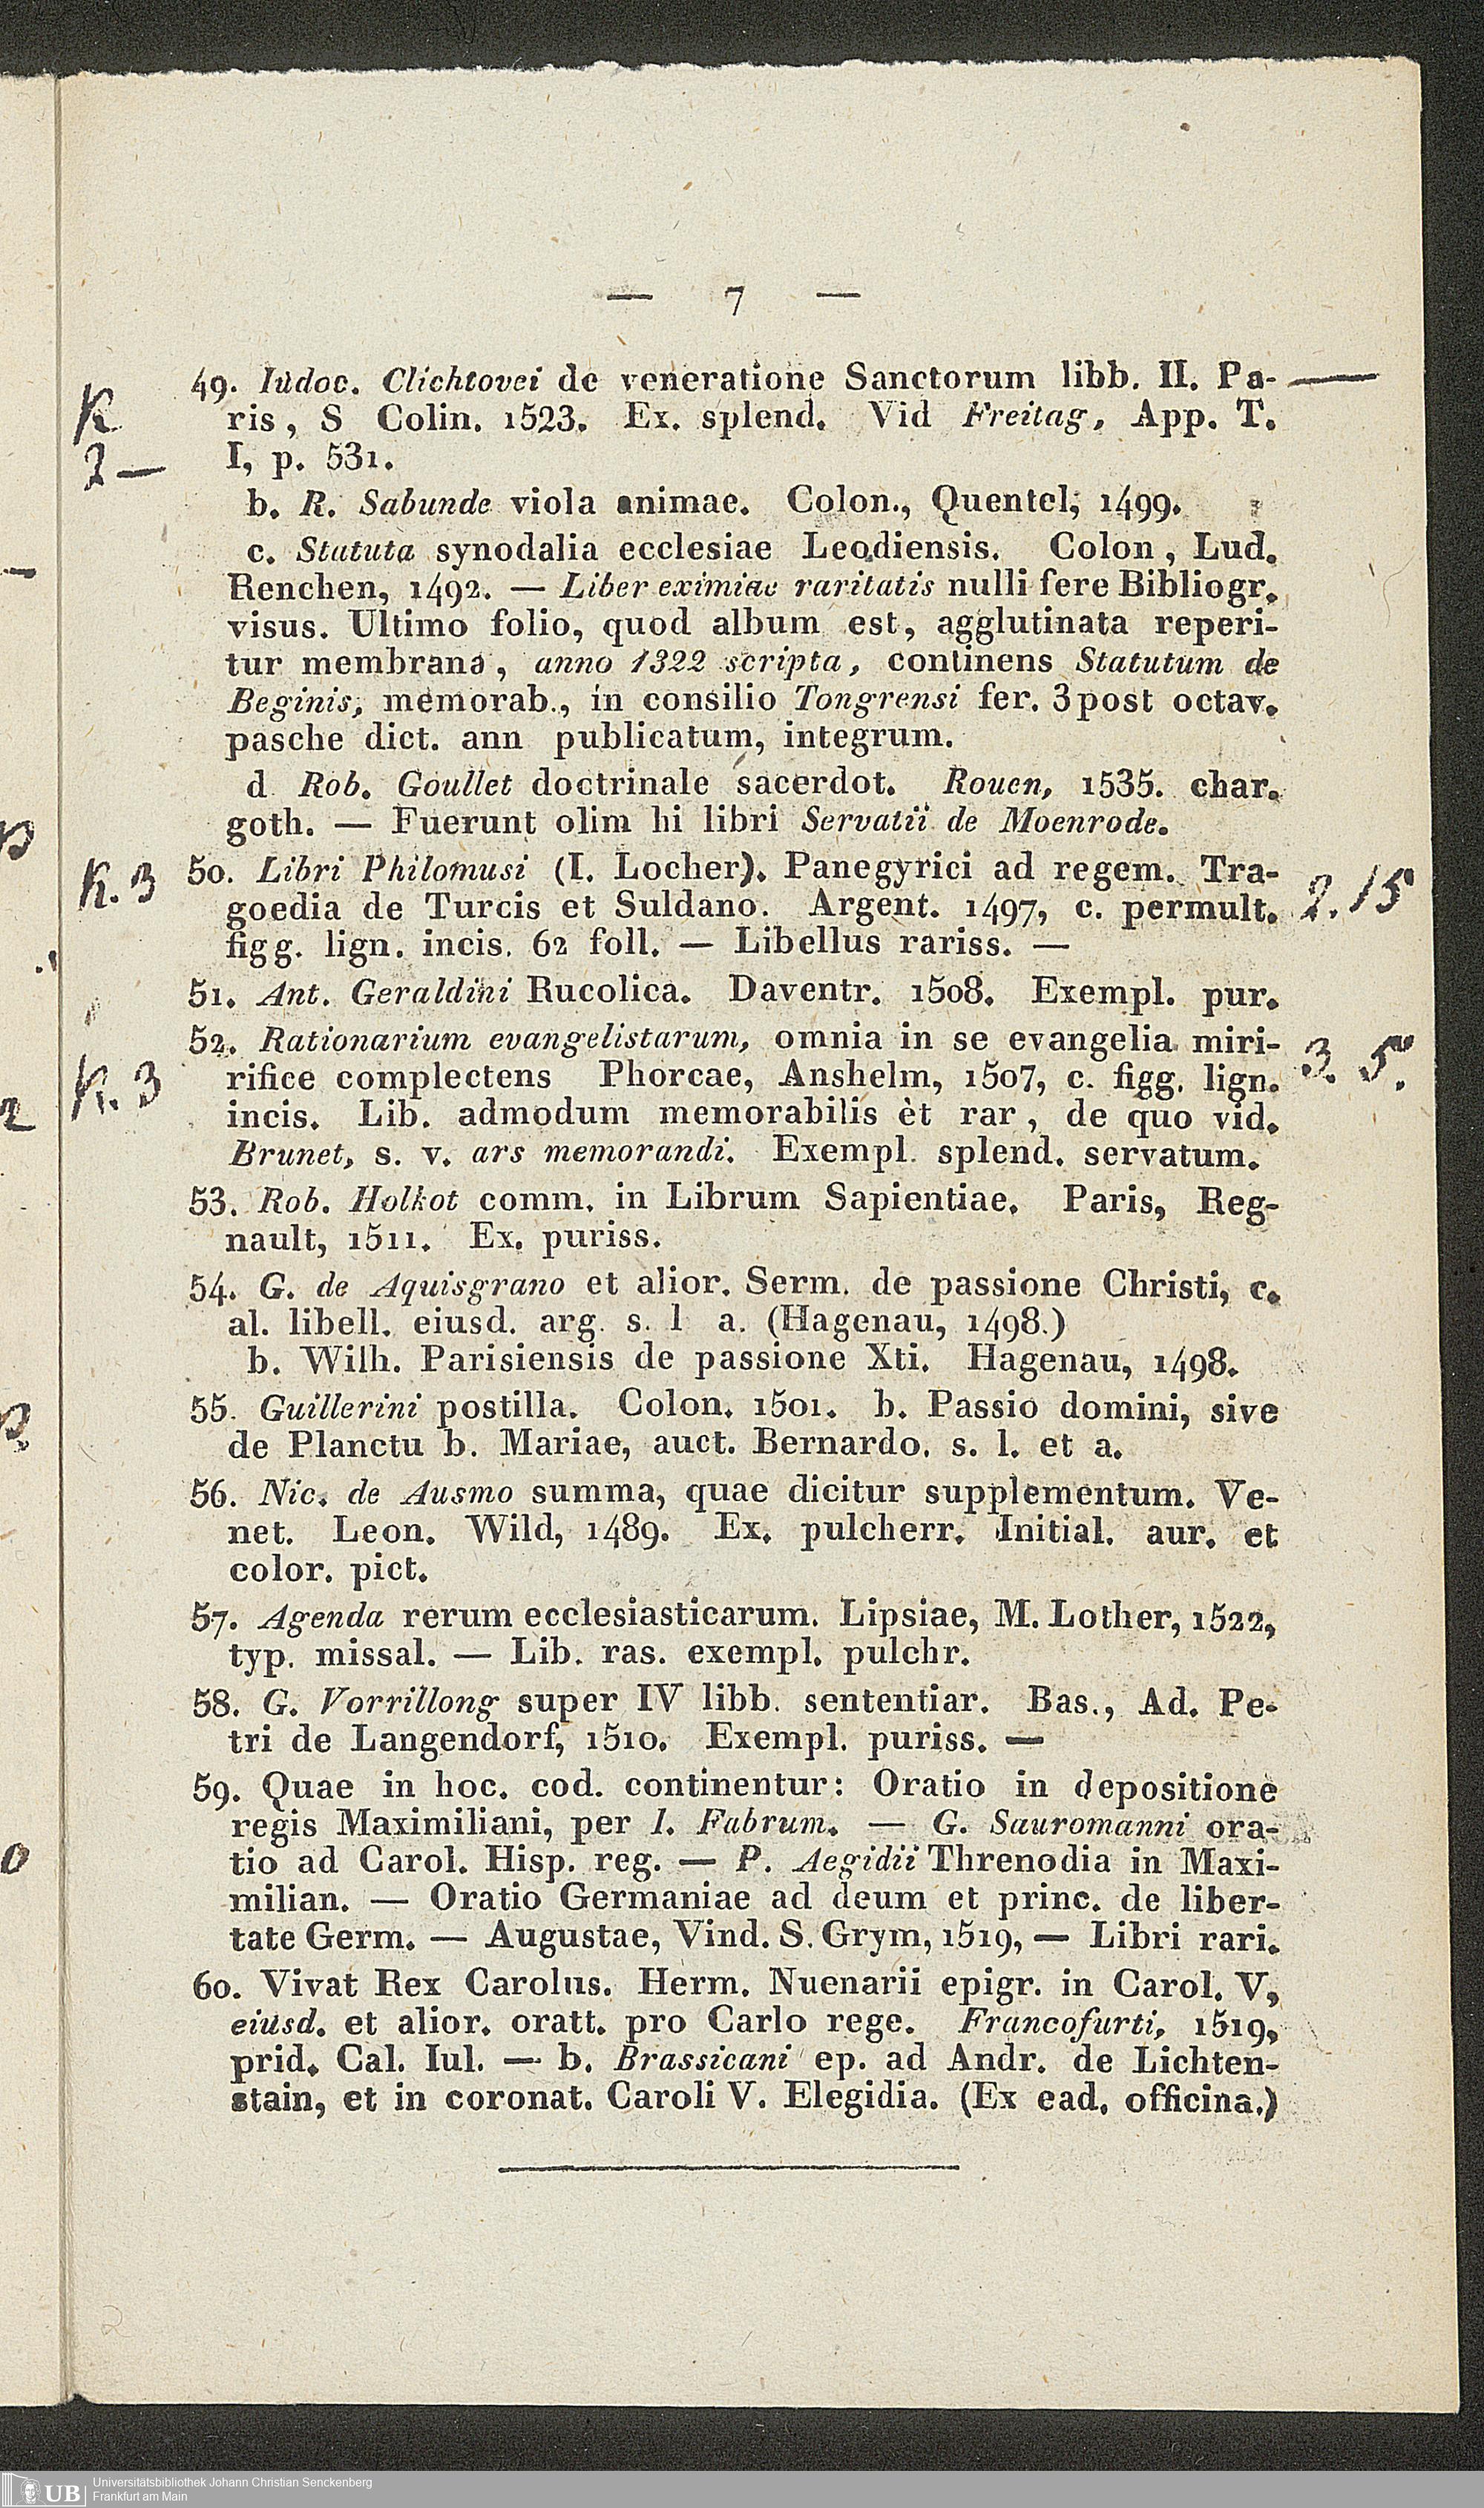 — 7 —
49. Iudoc. Clichtovei de veneratione Sanctorum libb. II. Pa- —
K
ris, S Colin. 1523. Ex. splend. Vid Freitag, App. T.
2 —
I, p. 531.
b. R. Sabunde viola animae. Colon., Quentel, 1499.
c. Statuta synodalia ecclesiae Leodiensis. Colon, Lud.
Renchen, 1492. — Liber eximiae raritatis nulli fere Bibliogr.
visus. Ultimo folio, quod album est, agglutinata reperi-
tur membrana, anno 1322 scripta, continens Statutum de
Beginis, memorab., in consilio Tongrensi fer. 3 post octav.
pasche dict. ann publicatum, integrum.
d Rob. Goullet doctrinale sacerdot. Rouen, 1535. char.
goth. — Fuerunt olim hi libri Servatii de Moenrode.
K. 3 50. Libri Philomusi (I. Locher). Panegyrici ad regem. Tra-
goedia de Turcis et Suldano. Argent. 1497, c. permult. 2. 15
figg. lign. incis. 62 foll. — Libellus rariss. —
51. Ant. Geraldini Rucolica. Daventr. 1508. Exempl. pur.
52. Rationarium evangelistarum, omnia in se evangelia miri-
K. 3 rifice complectens Phorcae, Anshelm, 1507, c. figg. lign. 3. 5.
incis. Lib. admodum memorabilis èt rar, de quo vid.
Brunet, s. v. ars memorandi. Exempl. splend. servatum.
53. Rob. Holkot comm. in Librum Sapientiae. Paris, Reg-
nault, 1511. Ex. puriss.
54. G. de Aquisgrano et alior. Serm. de passione Christi, c.
al. libell. eiusd. arg. s. l a. (Hagenau, 1498.)
b. Wilh. Parisiensis de passione Xti. Hagenau, 1498.
55. Guillerini postilla. Colon. 1501. b. Passio domini, sive
de Planctu b. Mariae, auct. Bernardo. s. l. et a.
56. Nic. de Ausmo summa, quae dicitur supplementum. Ve-
net. Leon. Wild, 1489. Ex. pulcherr. Initial. aur. et
color. pict.
57. Agenda rerum ecclesiasticarum. Lipsiae, M. Lother, 1522,
typ. missal. — Lib. ras. exempl. pulchr.
58. G. Vorrillong super IV libb. sententiar. Bas., Ad. Pe-
tri de Langendorf, 1510. Exempl. puriss. —
59. Quae in hoc. cod. continentur: Oratio in depositione
regis Maximiliani, per I. Fabrum. — G. Sauromanni ora-
tio ad Carol. Hisp. reg. — P. Aegidii Threnodia in Maxi-
milian. — Oratio Germaniae ad deum et princ. de liber-
tate Germ. — Augustae, Vind. S. Grym, 1519, — Libri rari.
60. Vivat Rex Carolus. Herm. Nuenarii epigr. in Carol. V,
eiusd. et alior. oratt. pro Carlo rege. Francofurti, 1519,
prid. Cal. Iul. — b. Brassicani ep. ad Andr. de Lichten-
stain, et in coronat. Caroli V. Elegidia. (Ex ead. officina.)
UB Universitätsbibliothek Johann Christian Senckenberg
Frankfurt am Main